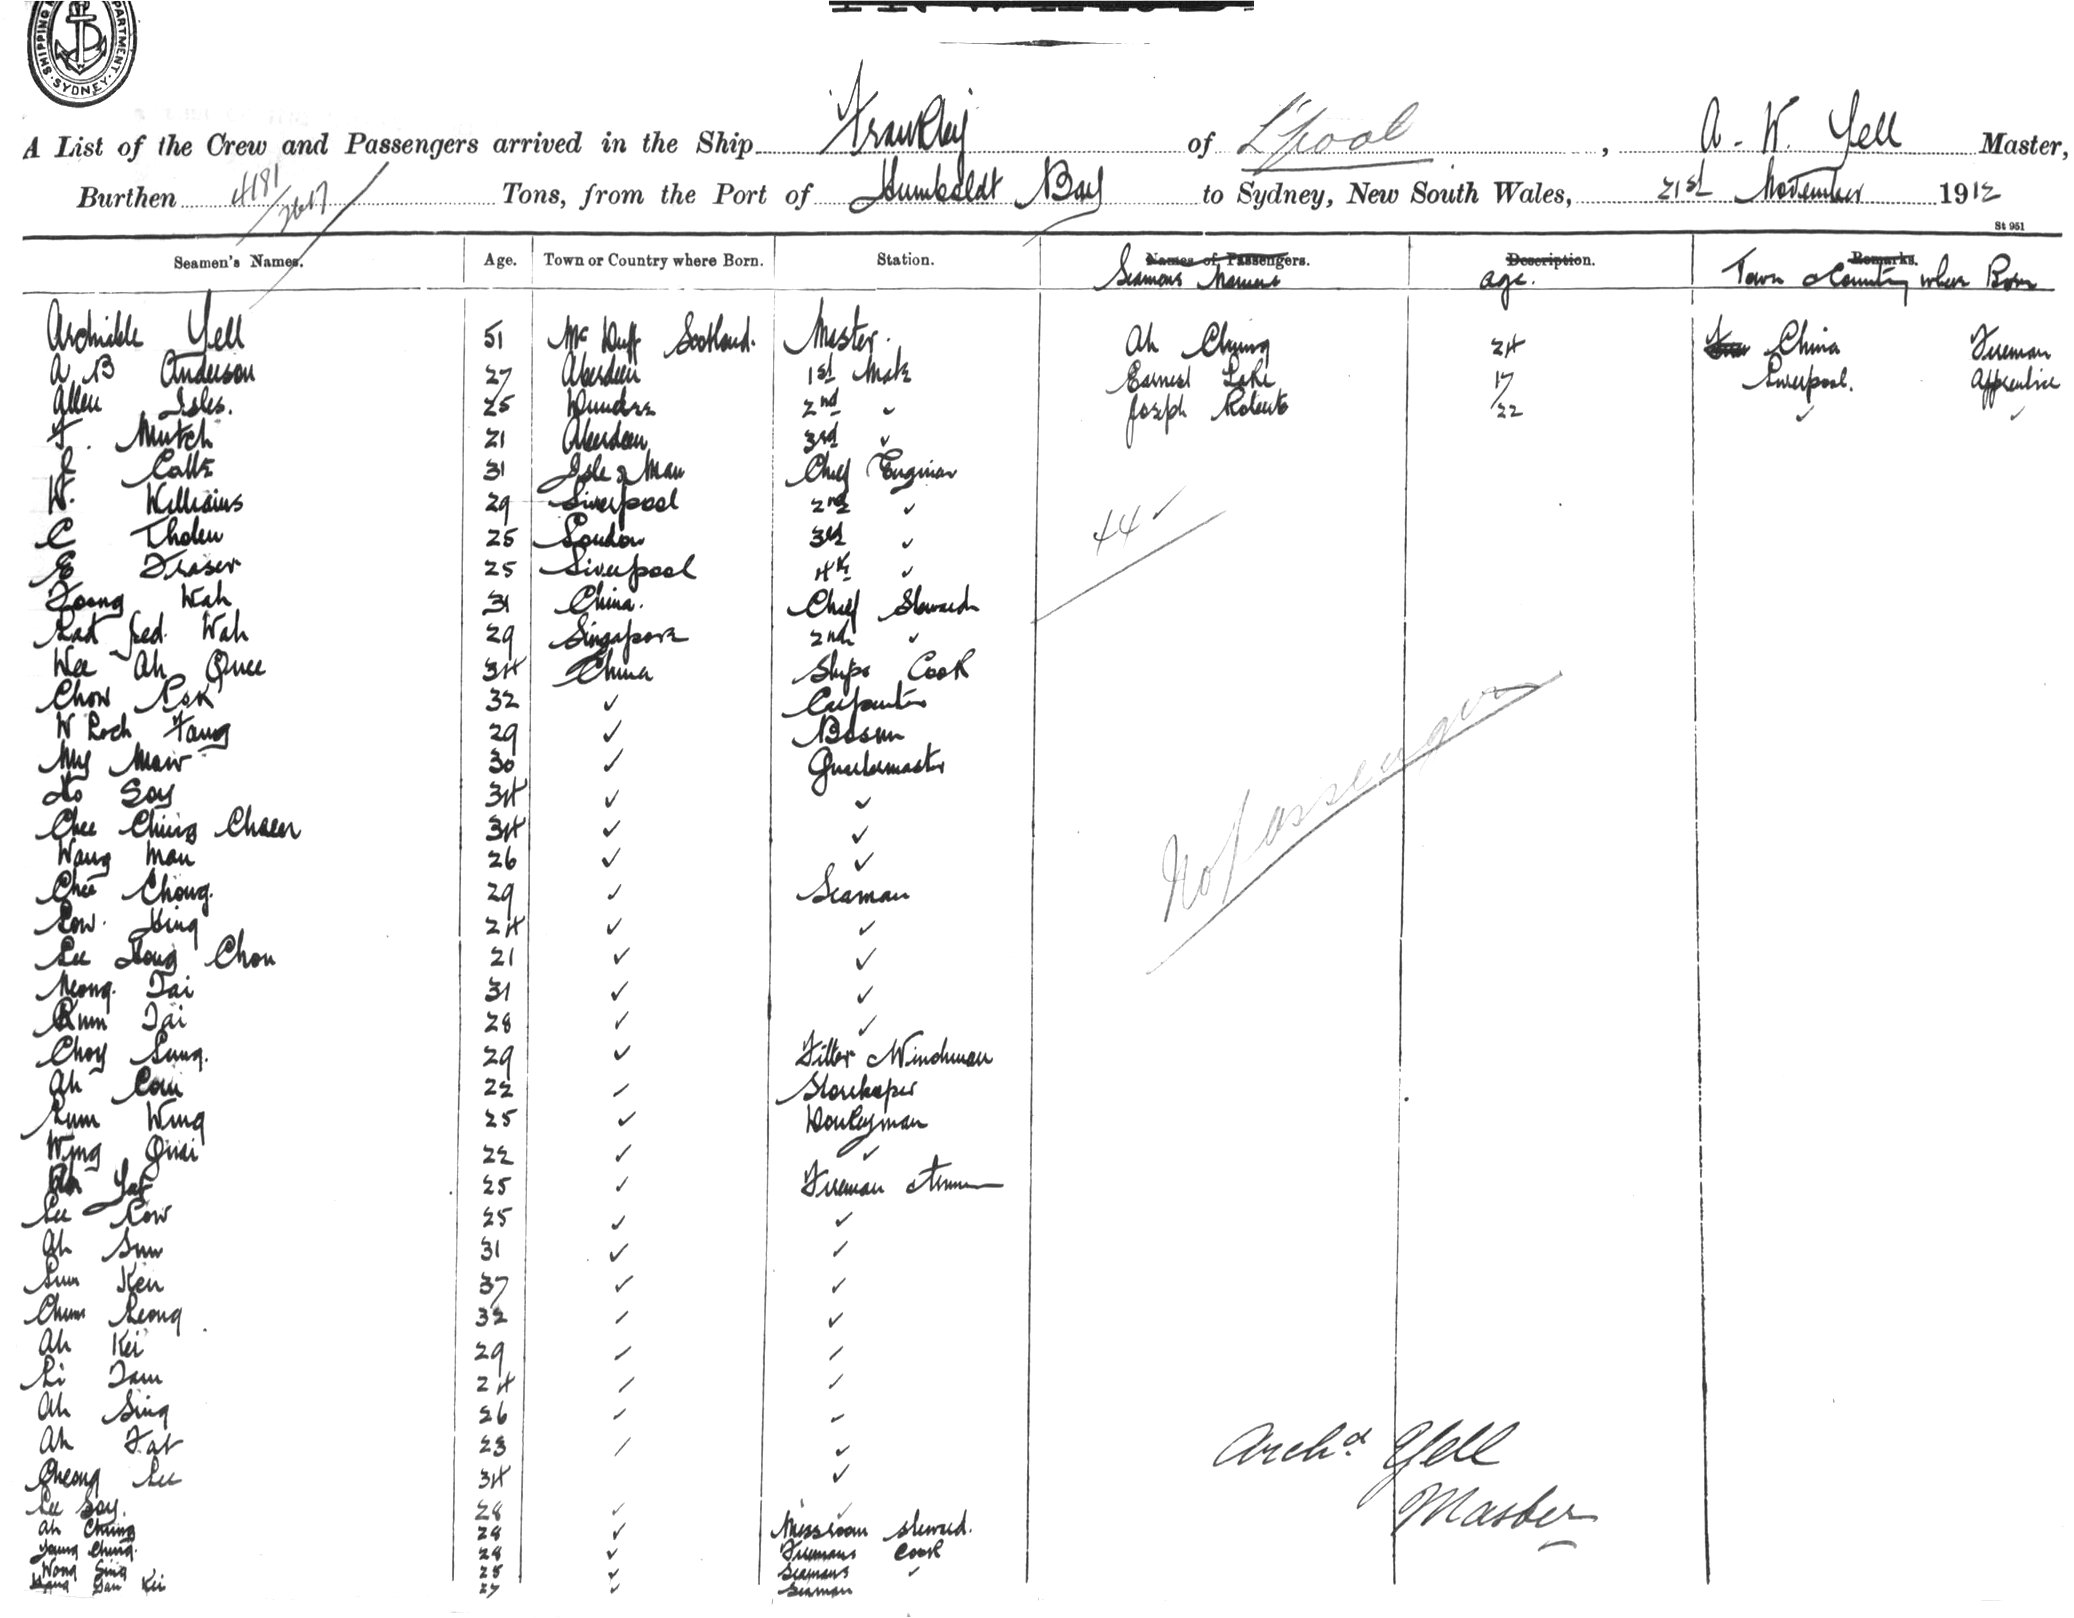 SHIPPING DEPARTMENT SYDNEY
A List of the Crew and Passengers arrived in the Ship of L'pool, A. W. Yell Master,
Burthen 4181/2617 Tons, from the Port of Humboldt Bay to Sydney, New South Wales, 21st November 1912
St 951
Seamen's Names. Age. Town or Country where Born. Station. Names of Passengers. Description. Remarks.
Seamens Names age. Town & Country where Born
Yell 51 Mc Duff Scotland. Master. Ah Chung 24 China Fireman
A B Anderson 27 Aberdeen 1st Mate Earnest Lake 17 Liverpool. Apprentice
Allen Isles. 25 Dundee 2nd " Joseph Roberts 22 " "
F. Mutch 21 Aberdeen 3rd "
31 Isle of Man Chief Engineer
W. Williams 29 Liverpool 2nd "
C Tholen 25 London 3rd "
E Fraser 25 Liverpool 4th "
44
Foong Wah 31 China. Chief Steward
Wah 29 Singapore 2nd "
Wee Ah Quee 34 China Ships Cook
Chow Kok 32 " Carpenter
W Loch Fang 29 " Bosun
Maw 30 " Quartermaster
No passengers
Soy 34 " "
Chee Ching Chaen 34 " "
Wang Man 26 " "
Chee Chong. 29 " Seaman
Low King 24 " "
Lee Chou 21 " "
Meong Tai 31 " "
Tai 28 " "
Choy Lung. 29 " Fitter & Winchman
Ah Com 22 " Storekeeper
Lum Wing 25 " Donkeyman
Wing Quai 22 " "
25 " Fireman
Lee Low 25 " "
Ah Sun 31 " "
Lum Ken 37 " "
Chum Leong 32 " "
Ah Kei 29 " "
Li Tam 24 " "
Ah Sing 26 " "
Ah Fat 23 " "
Cheong Lee 34 " "
Archd Yell
Master
Lee Soy. 28 " "
Ah Chung 28 " Messroom steward.
Young Ching. 28 " Firemans Cook
Wong Sing 25 " Seamans "
Kei 27 " Seaman